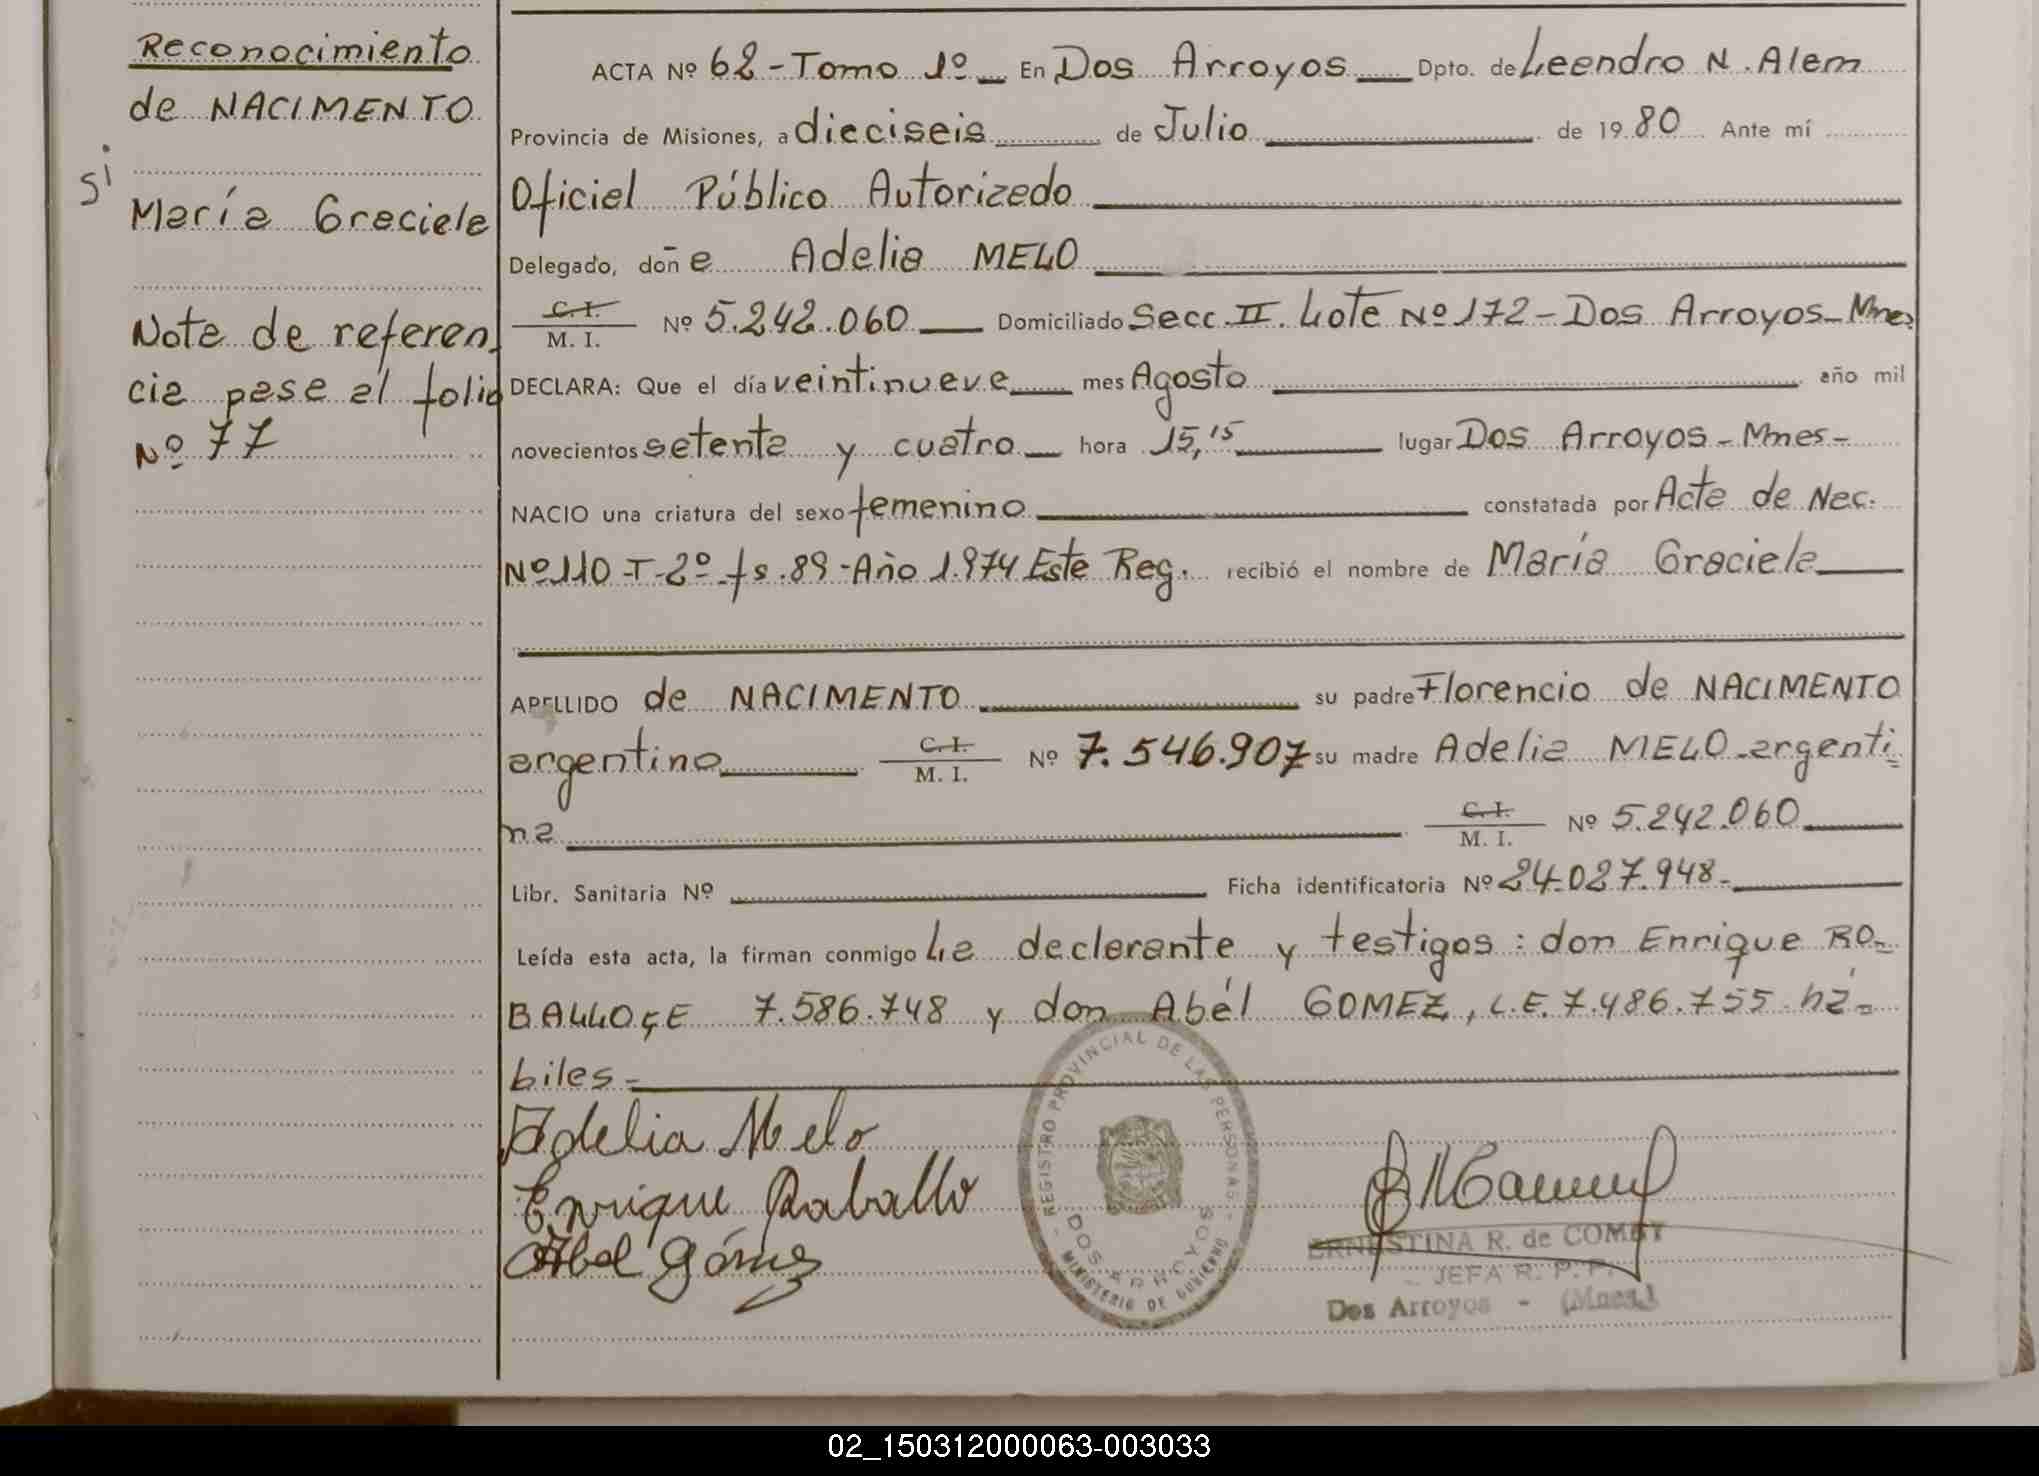 Reconocimiento
de NACIMENTO
si
María Graciela
Nota de referen
cia pase al folio
Nº 77
ACTA Nº 62 - Tomo 1º En Dos Arroyos Dpto. de Leandro N. Alem
Provincia de Misiones, a dieciseis de Julio de 1980 Ante mí
Oficial Público Autorizado
Delegado, doña Adelia MELO
C. I.
M. I. Nº 5.242.060 Domiciliado Secc. II. Lote Nº 172 - Dos Arroyos - Mnes
DECLARA: Que el día veintinueve mes Agosto año mil
novecientos setenta y cuatro hora 15,15 lugar Dos Arroyos - Mnes -
NACIO una criatura del sexo femenino constatada por Acta de Nac.
Nº 110 - T - 2º - fs. 89 - Año 1.974 Este Reg. recibió el nombre de María Graciela
APELLIDO de NACIMENTO su padre Florencio de NACIMENTO
argentino C. I. M. I. Nº 7.546.907 su madre Adelia MELO - argenti
na C. I. M. I. Nº 5.242.060
Libr. Sanitaria Nº Ficha identificatoria Nº 24.027.948 -
Leída esta acta, la firman conmigo La declarante y testigos : don Enrique RO-
BALLO, CE 7.586.748 y don Abél GOMEZ, L.E. 7.486.755 há-
biles -
Adelia Melo
Enrique Raballo
Abel Gómez
- REGISTRO PROVINCIAL DE LAS PERSONAS -
DOS ARROYOS
MINISTERIO DE GOBIERNO
ERNESTINA R. de COMBY
JEFA R. P. P.
Dos Arroyos - (Mnes.)
02_150312000063-003033